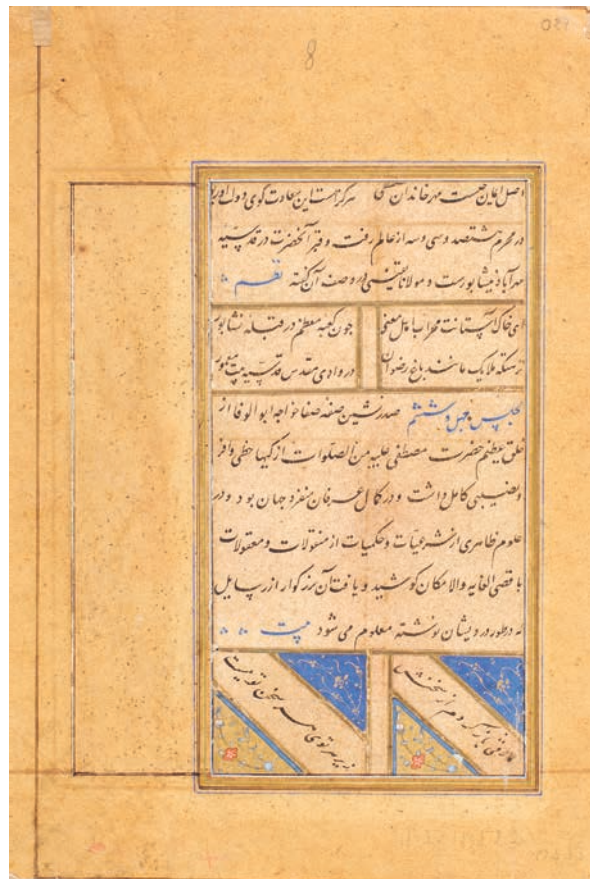 اصل اعلن حسبت مهر خاندان هر که هست این سعادت گوی دولت او ربود
در محرم هشتصد و سی و سه از عالم رفت و قبر آنحضرت در قدسیه
مهرآباد نیشابورست و مولانا نفیسی در وصف آن گفته نظم
ای خاک آستانت محراب اهل معنی چون کعبه معظم در قبله نشابور
ملایک مانند باغ رضوان در وادی مقدس قدسیه بیت معمور
مجلس چهل و ششم صدر نشین صفه صفا خواجه ابو الوفا از
خلق عظیم حضرت مصطفی علیه من الصلوات ازکیها حظی وافر
و نصیبی کامل داشت و در کمال عرفان منفرد جهان بود و در
علوم ظاهری از شرعیات و حکمیات از منقولات و معقولات
باقصی الغایه والامکان کوشید و یافت آن بزرگوار از رسایل
که در طور درویشان نوشته معلوم می شود بیت
سخن تو نیست